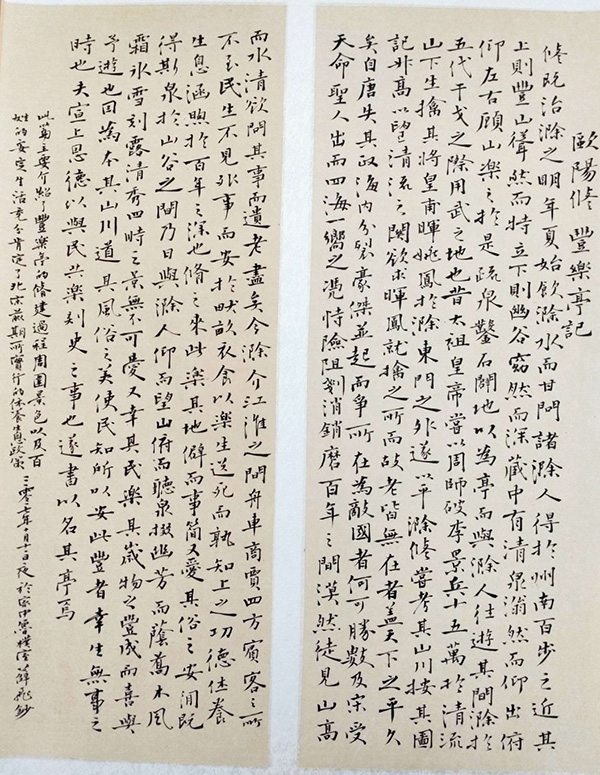 歐陽修 豐樂亭記
脩既治滁之明年夏始飲滁水而甘問諸滁人得於州南百步之近其
上則豐山聳然而特立下則幽谷窈然而深藏中有清泉滃然而仰出俯
仰左右顧山樂之於是疏泉鑿石闢地以為亭而與滁人往遊其間滁於
五代干戈之際用武之地也昔太祖皇帝嘗以周師破李景兵十五萬於清流
山下生擒其將皇甫暉姚鳳於滁東門之外遂以平滁脩嘗考其山川按其圖
記升高以望清流之關欲求暉鳳就擒之所而故老皆無在者蓋天下之平久
矣自唐失其政海內分裂豪傑並起而爭所在為敵國者何可勝數及宋受
天命聖人出而四海一嚮之凴恃險阻剗消銷磨百年之間漠然徒見山高
而水清欲問其事而遺老盡矣今滁介江淮之間舟車商賈四方賓客之所
不至民生不見外事而安於畎畝衣食以樂生送死而孰知上之功德休養
生息涵煦於百年之深也脩之來此樂其地僻而事簡又愛其俗之安閒既
得斯泉於山谷之間乃日與滁人仰而望山俯而聽泉掇幽芳而蔭喬木風
霜冰雪刻露清秀四時之景無不可愛又幸其民樂其歲物之豐成而喜與
予遊也因為本其山川道其風俗之美使民知所以安此豐者幸生無事之
時也夫宣上恩德以與民共樂刺史之事也遂書以名其亭焉
此篇主要介紹了豐樂亭的脩建過程周圍景色以及百
姓的安定生活充分肯定了北宋前期所實行的休養生息政策 二零七年十月十一日夜於家中